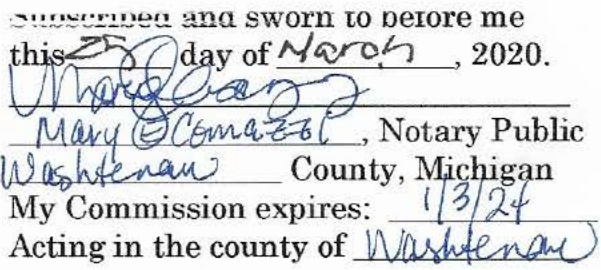 Subscribed and sworn to before me
this 25 day of March, 2020.
Mary E Comazzi, Notary Public
Washtenaw County, Michigan
My Commission expires: 1/3/24
Acting in the county of Washtenaw